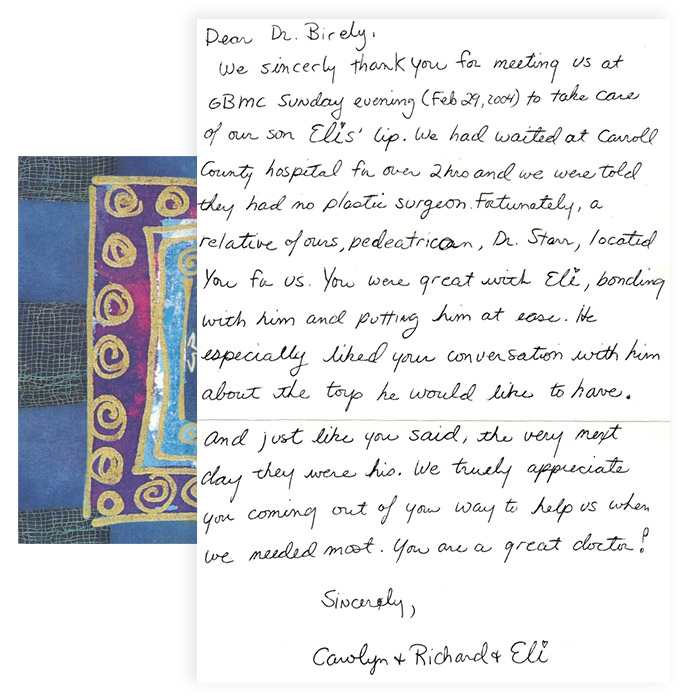 Dear Dr. Birely,
We sincerly thank you for meeting us at
GBMC Sunday evening (Feb 29, 2004) to take care
of our son Elis' lip. We had waited at Carroll
County hospital for over 2 hrs and we were told
they had no plastic surgeon. Fortunately, a
relative of ours, pedeatrican, Dr. Starr, located
You for us. You were great with Eli, bonding
with him and putting him at ease. He
especially liked your conversation with him
about the toys he would like to have.
And just like you said, the very next
day they were his. We truely appreciate
you coming out of your way to help us when
we needed most. You are a great doctor!
Sincerely,
Carolyn & Richard & Eli